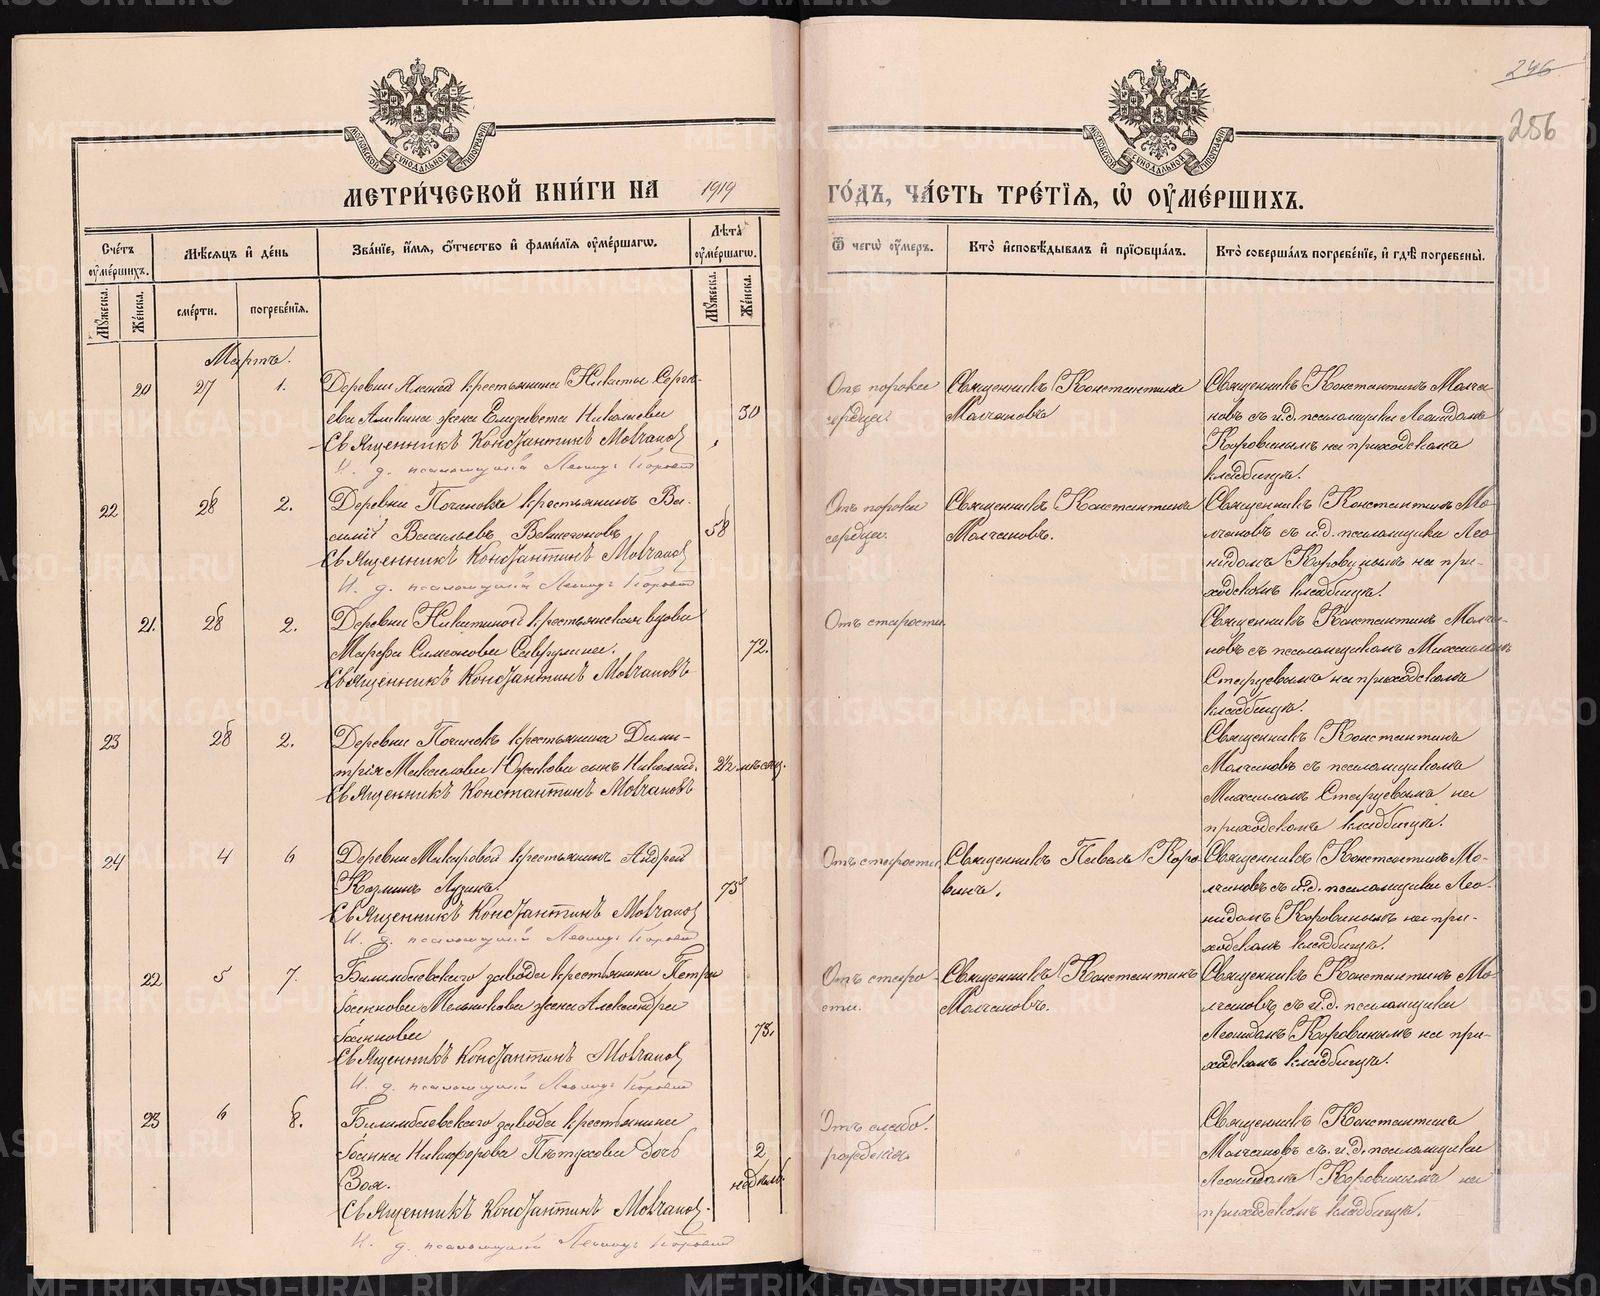 246
256
МЕТРИ́ЧЕСКОЙ КНИ́ГИ НА 1919 ГО́ДЪ, ЧА́СТЬ ТРЕ́ТІЯ, Ѡ ОУМЕ́РШИХЪ.
Сче́тъ оуме́ршихъ.
Мѣсяцъ и де́нь
Зва́ніе, и́мя, ѻ́тчество и фами́лія оуме́ршагѡ.
Лѣта̀ оуме́ршагѡ.
Ѿ чегѡ̀ оу́меръ.
Кто̀ исповѣ́дывалъ и пріѡбща́лъ.
Кто̀ соверша́лъ погребе́ніе, и гдѣ̀ погребены̀.
Му́жеска.
Же́нска.
сме́рти.
погребе́нія.
Му́жеска.
Же́нска.
Мартъ.
20 27 1.
Деревни крестьянина Никиты Серге-
ева жена Елизавета Николаева 30
Священникъ Константинъ Молчановъ
И. д. псаломщика Леонидъ Коровинъ
Отъ порока
сердца.
Священникъ Константинъ
Молчановъ
Священникъ Константинъ Молча-
новъ съ и.д. псаломщика Леонидомъ
Коровинымъ на приходскомъ
кладбищѣ.
22 28 2.
Деревни Починокъ крестьянинъ Ва-
силій Васильевъ 58
Священникъ Константинъ Молчановъ
И. д. псаломщика Леонидъ Коровинъ
Отъ порока
сердца.
Священникъ Константинъ
Молчановъ.
Священникъ Константинъ Мо-
лчановъ съ и.д. псаломщика Лео-
нидомъ Коровинымъ на при-
ходскомъ кладбищѣ.
21. 28 2.
Деревни Никитиной крестьянская вдова
Марфа Симеонова 72.
Священникъ Константинъ Молчановъ
Отъ старости.
Священникъ Константинъ Молча-
новъ съ псаломщикомъ Михаиломъ
Старцевымъ на приходскомъ
кладбищѣ.
23 28 2.
Деревни Починокъ крестьянина Дими-
трія сынъ Николай. 2½ мѣсяц.
Священникъ Константинъ Молчановъ
Священникъ Константинъ
Молчановъ съ псаломщикомъ
Михаиломъ Старцевымъ на
приходскомъ кладбищѣ.
24 4 6
Деревни Макаровой крестьянинъ Андрей
Козминъ Лузинъ. 75
Священникъ Константинъ Молчановъ
И. д. псаломщика Леонидъ Коровинъ
Отъ старости.
Священникъ Павелъ Коро-
винъ.
Священникъ Константинъ Мо-
лчановъ съ и.д. псаломщика Лео-
нидомъ Коровинымъ на при-
ходскомъ кладбищѣ.
22 5 7.
Билимбаевскаго завода крестьянина Петра
Іоаннова Мельникова жена Александра
Іоаннова 73.
Священникъ Константинъ Молчановъ
И. д. псаломщика Леонидъ Коровинъ
Отъ старо-
сти.
Священникъ Константинъ
Молчановъ.
Священникъ Константинъ Мо-
лчановъ, съ и.д. псаломщика
Леонидомъ Коровинымъ на при-
ходскомъ кладбищѣ.
23 6 8.
Билимбаевскаго завода крестьянина
Іоанна Никифорова Пѣтухова дочь 2
Зоя. недѣль.
Священникъ Константинъ Молчановъ.
И. д. псаломщика Леонидъ Коровинъ
Отъ слабо.
рожденія.
Священникъ Константинъ
Молчановъ съ и.д. псаломщика
Леонидомъ Коровинымъ на
приходскомъ кладбищѣ.
METRIKI.GASO-URAL.RU